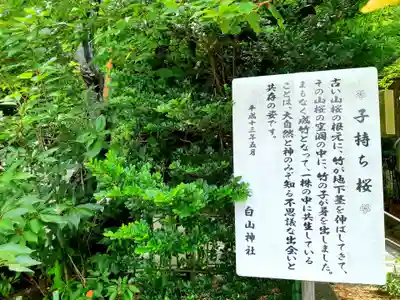 ❀子持ち桜❀
古い山桜の根元に、竹が地下茎を伸ばしてきて、
その山桜の空洞の中に、竹の子が芽を出しました。
まもなく成竹となって、一株の中に共生している
ことは、大自然と神のみぞ知る不思議な出会いと
共存の姿です。
平成十三年五月
白山神社